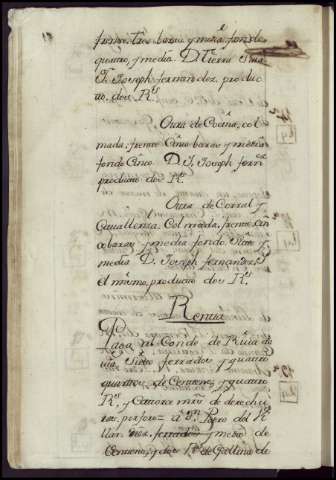 frente tres baras y media fondo
quatro, y media D. tierra Sua
D. Joseph fernandez, produc
to. dos R.s
Otra de Cocina, col
mada, frente Cinco baras y media
fondo Cinco D. J. Joseph fern.z
producto dos R.s
Otra de Corral y
Cavalleriza, Colmada, frente cin
co baras y media fondo Cinco y
media D. Joseph fernandez,
el mismo, producto dos R.s
Renta
Paga al Conde de
siete ferrados y quatro
quartos de Centeno, y quatro
R.s y Catorce mrs de derechu
ras, por foro a D.n Pedro del
ferrados y medio de
Centeno, y dos R.s de Gallina de